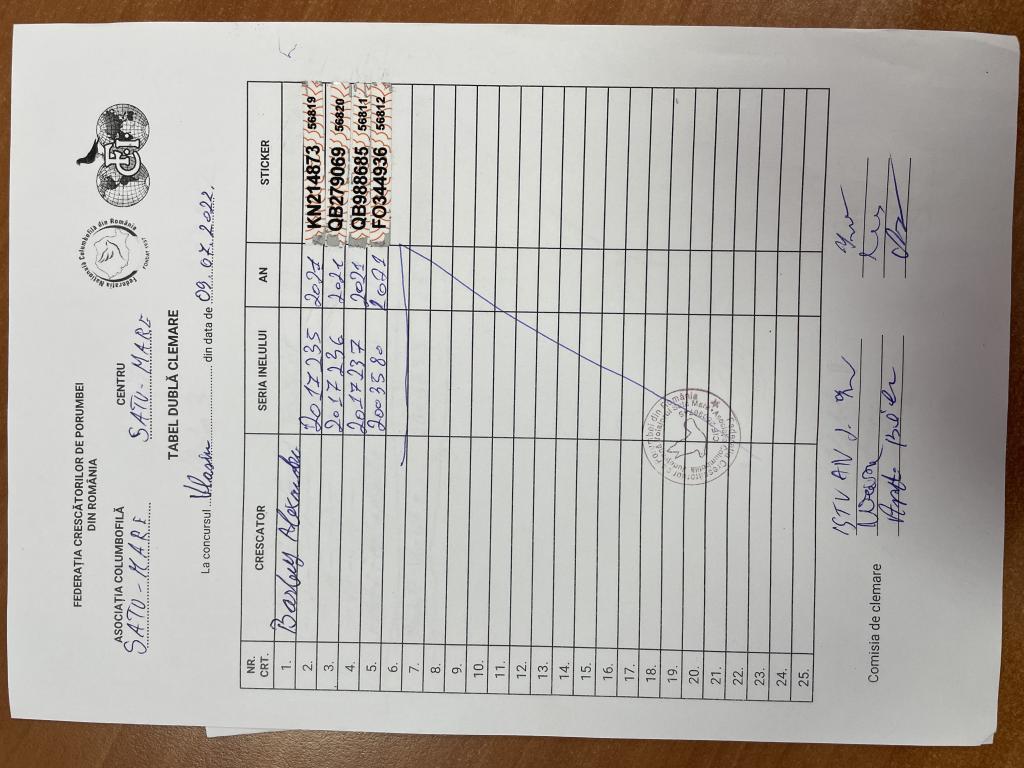 FEDERAȚIA CRESCĂTORILOR DE PORUMBEI
DIN ROMÂNIA
ASOCIAȚIA COLUMBOFILĂ CENTRU
SATU-MARE SATU-MARE
Federația Națională Columbofilă din România
TABEL DUBLĂ CLEMARE
La concursul din data de 09.07.2022.
NR. CRT. CRESCATOR SERIA INELULUI AN STICKER
1.
2. 2017235 2021 KN214873 56819
3. 2017236 2021 QB279069 56820
4. 2017237 2021 QB988685 56811
5. 2003580 2021 FO344936 56812
6.
7.
8.
9.
10.
11.
12.
13.
14.
15.
16.
17.
18.
19.
20.
21.
22.
23.
24.
25.
Comisia de clemare
ISTVAN J.